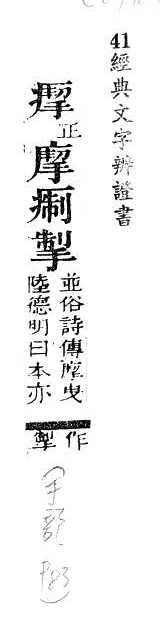 41經典文字辨證書
正
痸掣
並俗詩傳曳
陸德明曰本亦
作掣
(手部
P83)